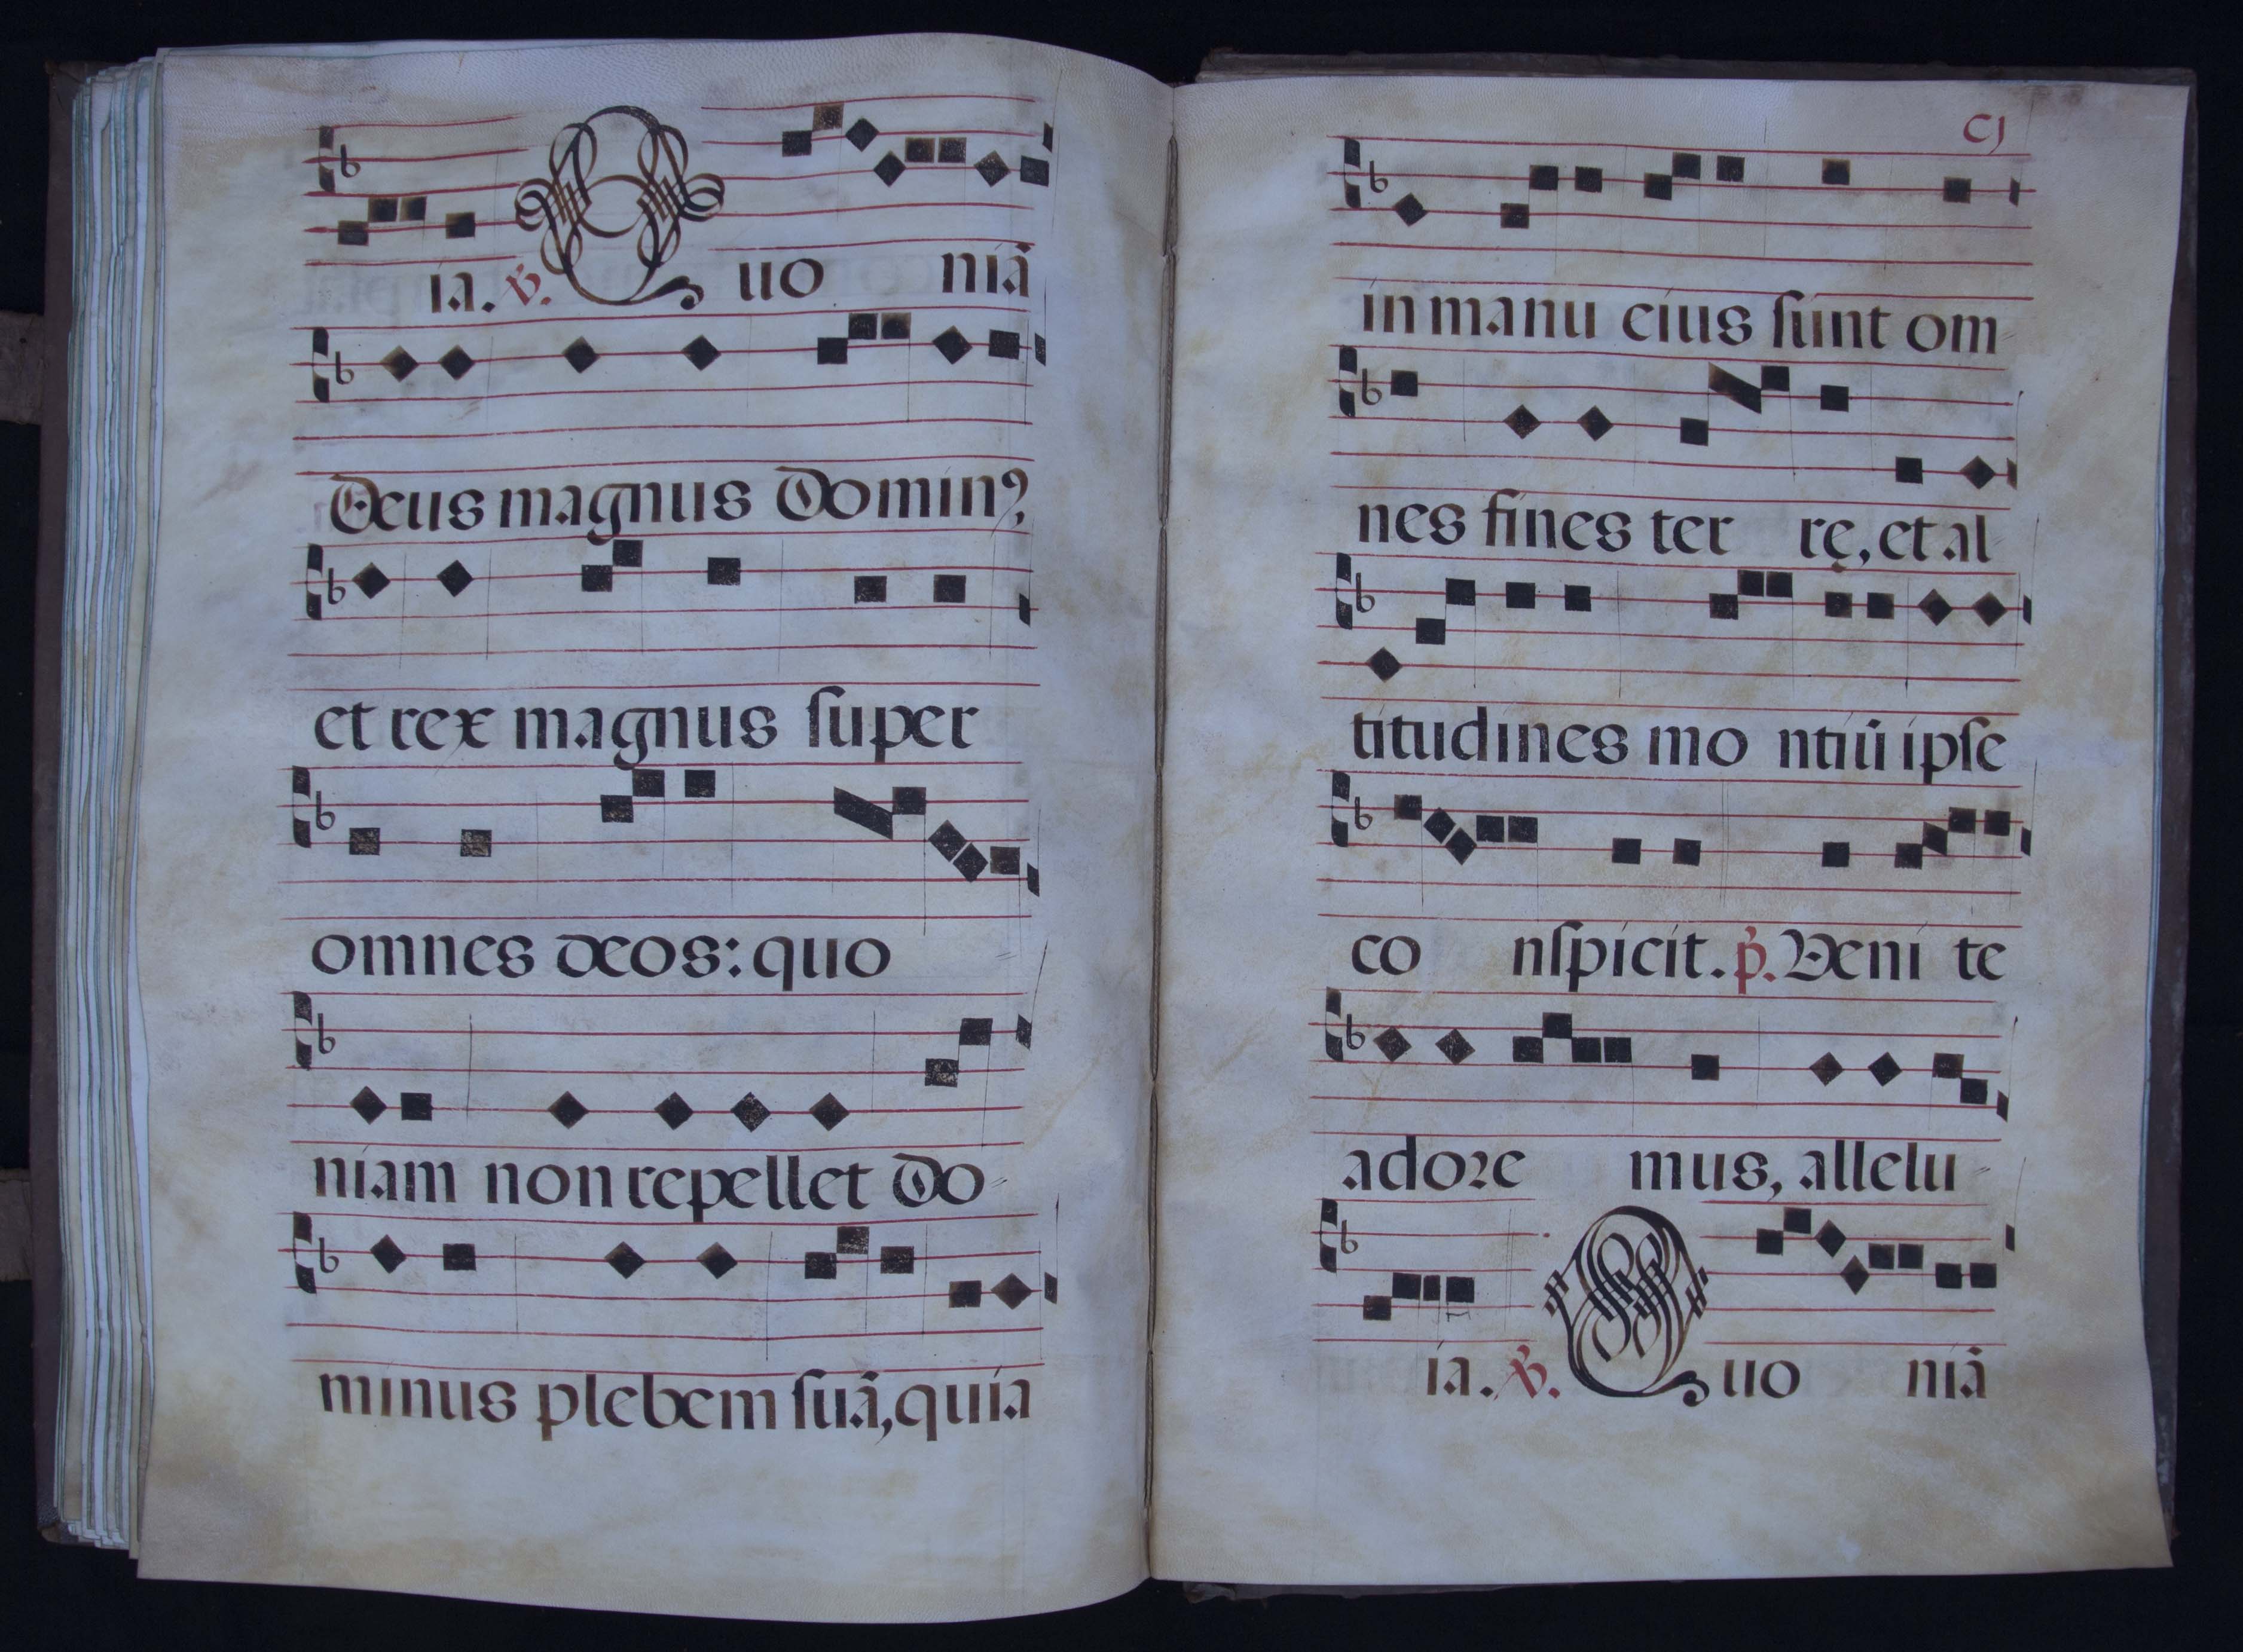 ia. ꝟ. Quo niã
Deus magnus Dominꝰ,
et rex magnus ſuper
omnes deos: quo
niam non repellet Do⸗
minus plebem ſuã, quia
cj
in manu eius ſunt om⸗
nes fines ter rę, et al
titudines mo ntiũ ipſe
co nſpicit. p̃. Veni te
adoꝛe mus, allelu⸗
ia. ꝟ. Quo niã